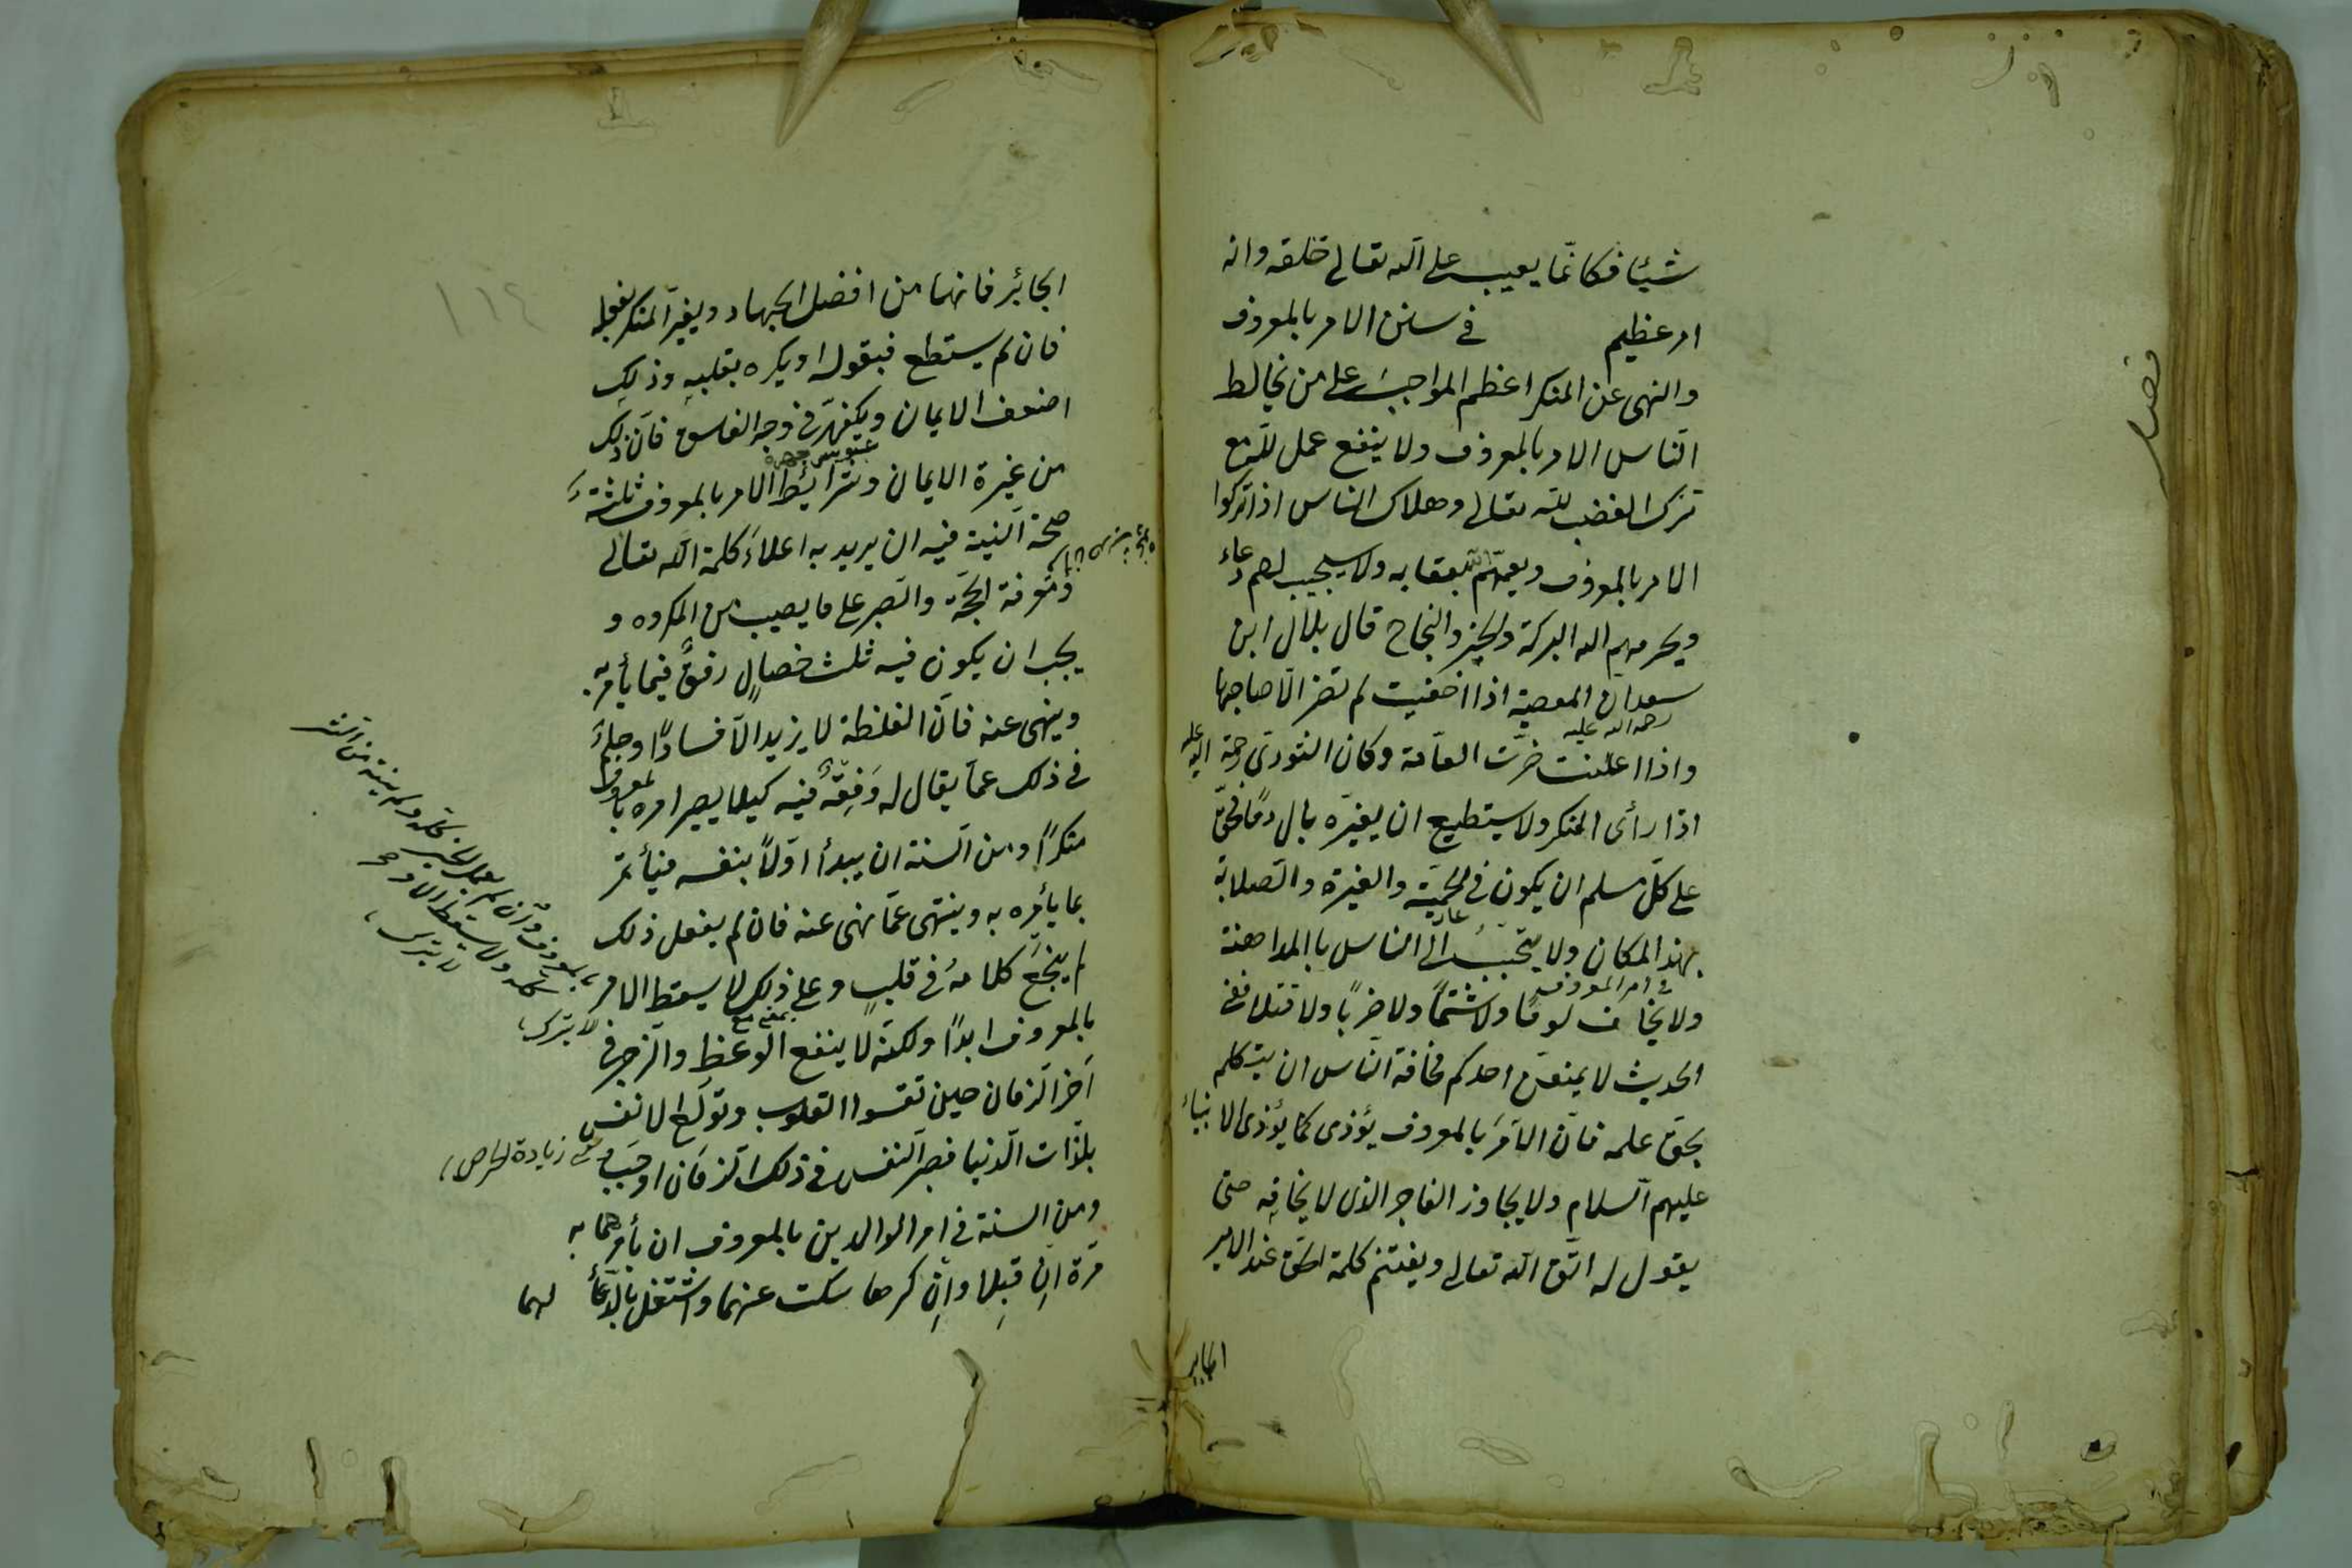 شيئا فكانّما يعيب على الله تعالى خلقه وانه
امر عظيم في سنن الامر بالمعروف
والنهى عن المنكر اعظم المواجب على من يخالط
النّاس الامر بالمعروف ولا ينفع عمل للّه مع
ترك الغضب للّه تعالى وهلاك الناس اذا تركوا
الامر بالمعروف ويعمّهم الله بعقابه ولا يستجيب لهم دعاء
ويحرمهم الله البركة والخير والنجاح قال بلال ابن
سعد ان المعصية اذا اخفيت لم تضر الّا صاحبها
رحمه الله عليه
واذا اعلنت ضرّت العامّة وكان الثوري رحمة الله عليه
اذا رأى المنكر ولا يستطيع ان يغيّره بال دمًا فحقّ
على كلّ مسلم ان يكون في الحميّة والغيرة والصّلابة
بهذا المكان ولا يتحبّب الى الناس بالمداهنة
في امر المعروف
ولا يخاف لومًا ولا شتمًا ولا ضربًا ولا قتلا ففي
الحديث لا يمنعنّ احدكم مخافة النّاس ان يتكلم
بحقّ علمه فانّ الآمر بالمعروف يؤذى كما يؤذى الانبياء
عليهم السلام ولا يجاوز الفاجر الذى لا يخافه حتى
يقول له اتّق الله تعالى ويغتنم كلمة الحق عند الامير
الجاير
فصل
١١٤
الجائر فانها من افضل الجهاد ويغيّر المنكر بفعله
فان لم يستطع فبقوله او يكره بقلبه وذلك
اضعف الايمان ويكفهرّ في وجه الفاسق فانّ ذلك
من غيرة الايمان وشرائط الامر بالمعروف ثلثة
صحة النية فيه ان يريد به اعلاء كلمة الله تعالى
ومعرفة الحجّة والصبر على ما يصيب من المكروه و
يجب ان يكون فيه ثلث خصال رفق فيما يأمر به
وينهى عنه فانّ الغلظة لا يزيد الّا فسادًا وحلم
في ذلك عمّا يقال له وفقه فيه كيلا يصير امره بالمعروف
منكرًا ومن السنة ان يبدأ اوّلا بنفسه فيأتمر
بما يأمره به وينتهى عمّا نهى عنه فان لم يفعل ذلك
لم ينجع كلامه في قلب وعلى ذلك لا يسقط الامر
بالمعروف ابدًا ولكنّه لا ينفع الوعظ والزجر في
آخر الزمان حين تقسوا القلوب وتولّع الانفس
بلذّات الدنيا فصبر النفس في ذلك الزمان اوجب
ومن السنة في امر الوالدين بالمعروف ان يأمرهما به
مرّة ان قبلا وان كرها سكت عنهما واشتغل بالدعاء لهما
لا يترك